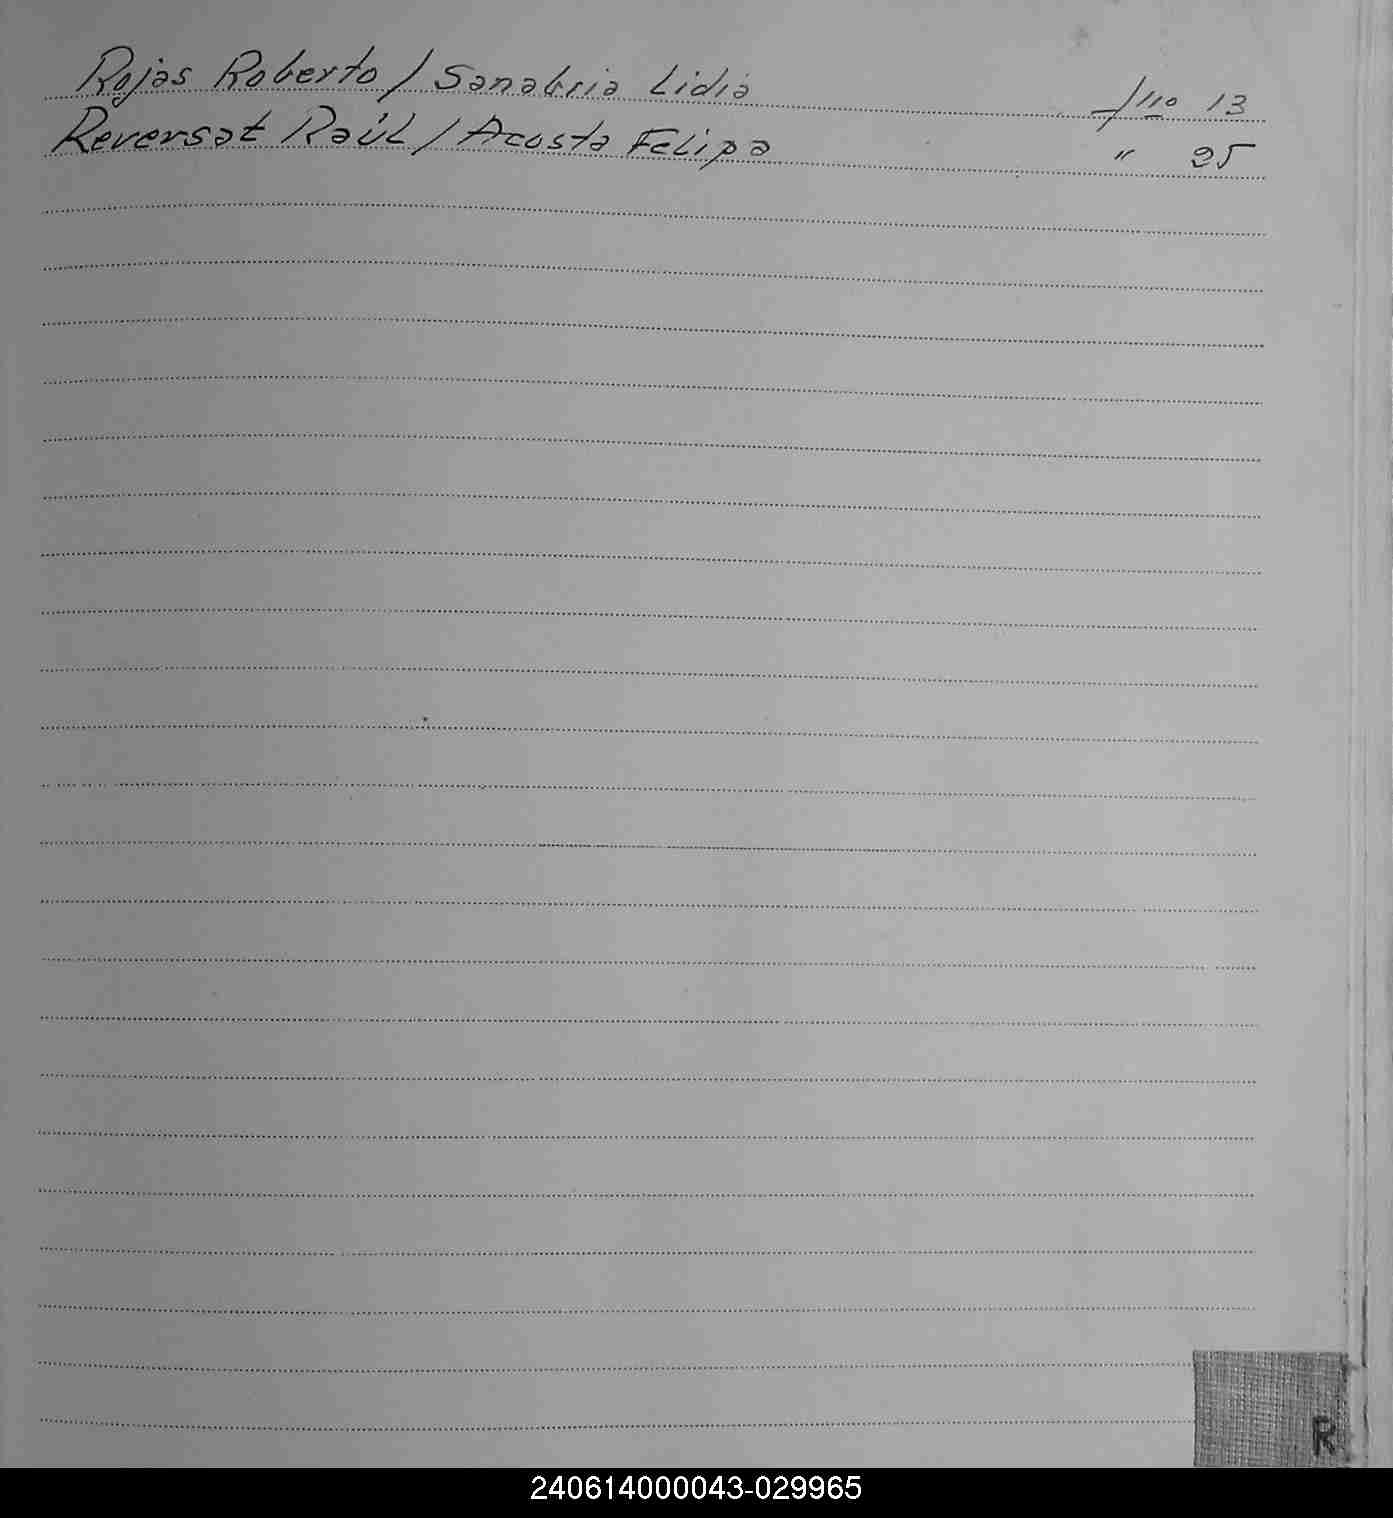 Rojas Roberto / Sanabria Lidia f no 13
Reversat Raúl / Acosta Felipa " 25
R
240614000043-029965